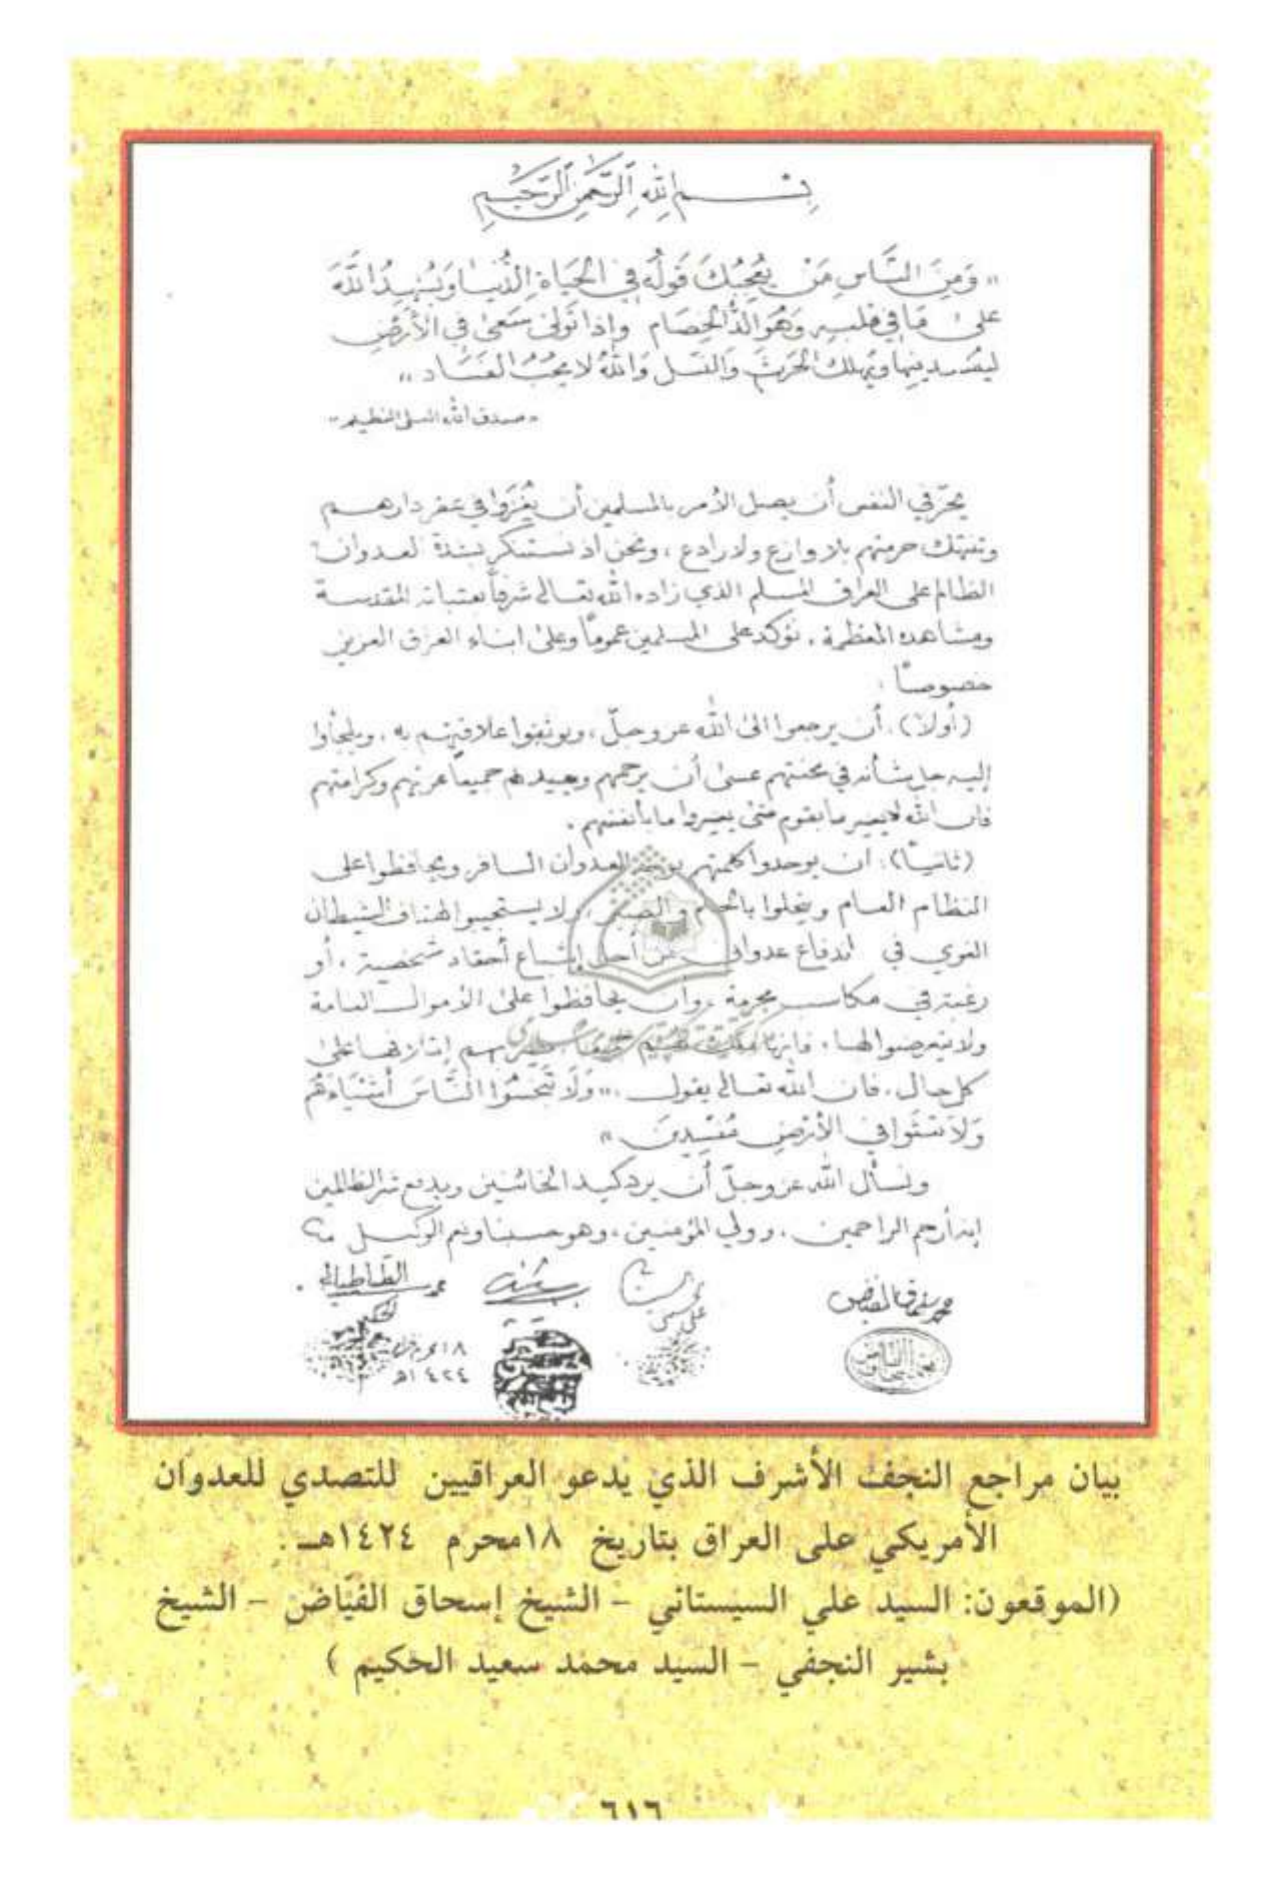 بِسْمِ اللهِ الرَّحْمَنِ الرَّحِيمِ
« وَمِنَ النَّاسِ مَنْ يُعْجِبُكَ قَولُهُ فِي الحَيَاةِ الدُّنْيَا وَيُشْهِدُ اللَّهَ
عَلىٰ مَا فِي قلبِهِ وَهُوَ الَدُّ الخِصَامِ وإذا تَولىٰ سَعىٰ فِي الأَرْضِ
ليفسد فيها ويُهلك الحَرثَ وَالنسل وَاللهُ لا يحبُّ الفَسَاد »
« صدق الله العلي العظيم »
يحزّ في النفس أن يصل الأمر بالمسلمين أن يُغْزَوا في عقر دارهم
وتنتهك حرمتهم بلا وازع ولا رادع ، ونحن اذ نستنكر بشدة العدوان
الظالم على العراق المسلم الذي زاده الله تعالى شرفاً بعتباته المقدسة
ومشاهده المعظمة ، نؤكد على المسلمين عموماً وعلى ابناء العراق العزيز
خصوصاً :
(أولاً) . أن يرجعوا الىٰ الله عز وجلّ ، ويوثقوا علاقتهم به ، ويلجأوا
إليه جل شأنه في محنتهم عسىٰ أن يرحمهم ويعيد لهم جميعاً عزتهم وكرامتهم
فان الله لا يغير ما بقوم حتىٰ يغيروا ما بأنفسهم .
(ثانياً) : ان يوحدوا كلمتهم بوجه العدوان السافر ويحافظوا على
النظام العام ويتحلوا بالحلم والصبر ، ولا يستجيبوا لهتاف الشيطان
الغوي في اندفاع عدواني من أجل إشباع أحقاد شخصية ، أو
رغبة في مكاسب محرمة ، وان يحافظوا علىٰ الأموال العامة
ولا يتعرضوا لها ، فإنها إتلافها علىٰ
كل حال ، فان الله تعالى يقول : « وَلَا تَبْخَسُوا النَّاسَ أَشْيَاءَهُمْ
وَلَا تَعْثَوا في الأَرْضِ مُفْسِدِينَ »
ونسأل الله عز وجلّ أن يرد كيد الخائنين ويدفع شر الظالمين
إنه أرحم الراحمين ، وولي المؤمنين ، وهو حسبنا ونعم الوكيل
محمد إسحاق الفياض
محمد سعيد الطباطبائي
الحكيم
١٨ محرم
١٤٢٤هـ
بيان مراجع النجف الأشرف الذي يدعو العراقيين للتصدي للعدوان
الأمريكي على العراق بتاريخ ١٨محرم ١٤٢٤هـ .
(الموقعون: السيد علي السيستاني – الشيخ إسحاق الفيّاض – الشيخ
بشير النجفي – السيد محمد سعيد الحكيم )
٦١٦